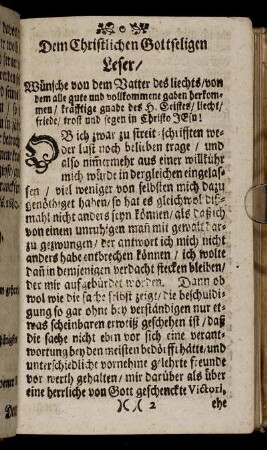 Dem Christlichen Gottseligen
Leser/
Wünsche von dem Vatter des liechts/von
dem alle gute und vollkommene gaben herkom-
men/ kräfftige gnade des H. Geistes/ liecht/
friede/ trost und segen in Christo JEsu!
OB ich zwar zu streit-schrifften we-
der lust noch belieben trage/ und
also nim̃ermehr aus einer willkühr
mich würde in dergleichen eingelas-
sen/ viel weniger von selbsten mich dazu
genöthiget haben/ so hat es gleichwol diß-
mahl nicht anders seyn können/ als daß ich
von einem unruhigen mañ mit gewalt dar-
zu gezwungen/ der antwort ich mich nicht
anders habe entbrechen können/ ich wolte
dañ in demjenigen verdacht stecken bleiben/
der mir aufgebürdet worden. Dann ob
wol wie die sache selbst zeigt/ die beschuldi-
gung so gar ohne bey verständigen nur et-
was scheinbaren erweiß geschehen ist/ daß
die sache nicht eben vor sich eine verant-
wortung bey den meisten bedörfft hätte/und
unterschiedliche vornehme gelehrte freunde
vor werth gehalten/ mir darüber als über
eine herrliche von Gott geschenckte Victori,
)( )( 2 ehe